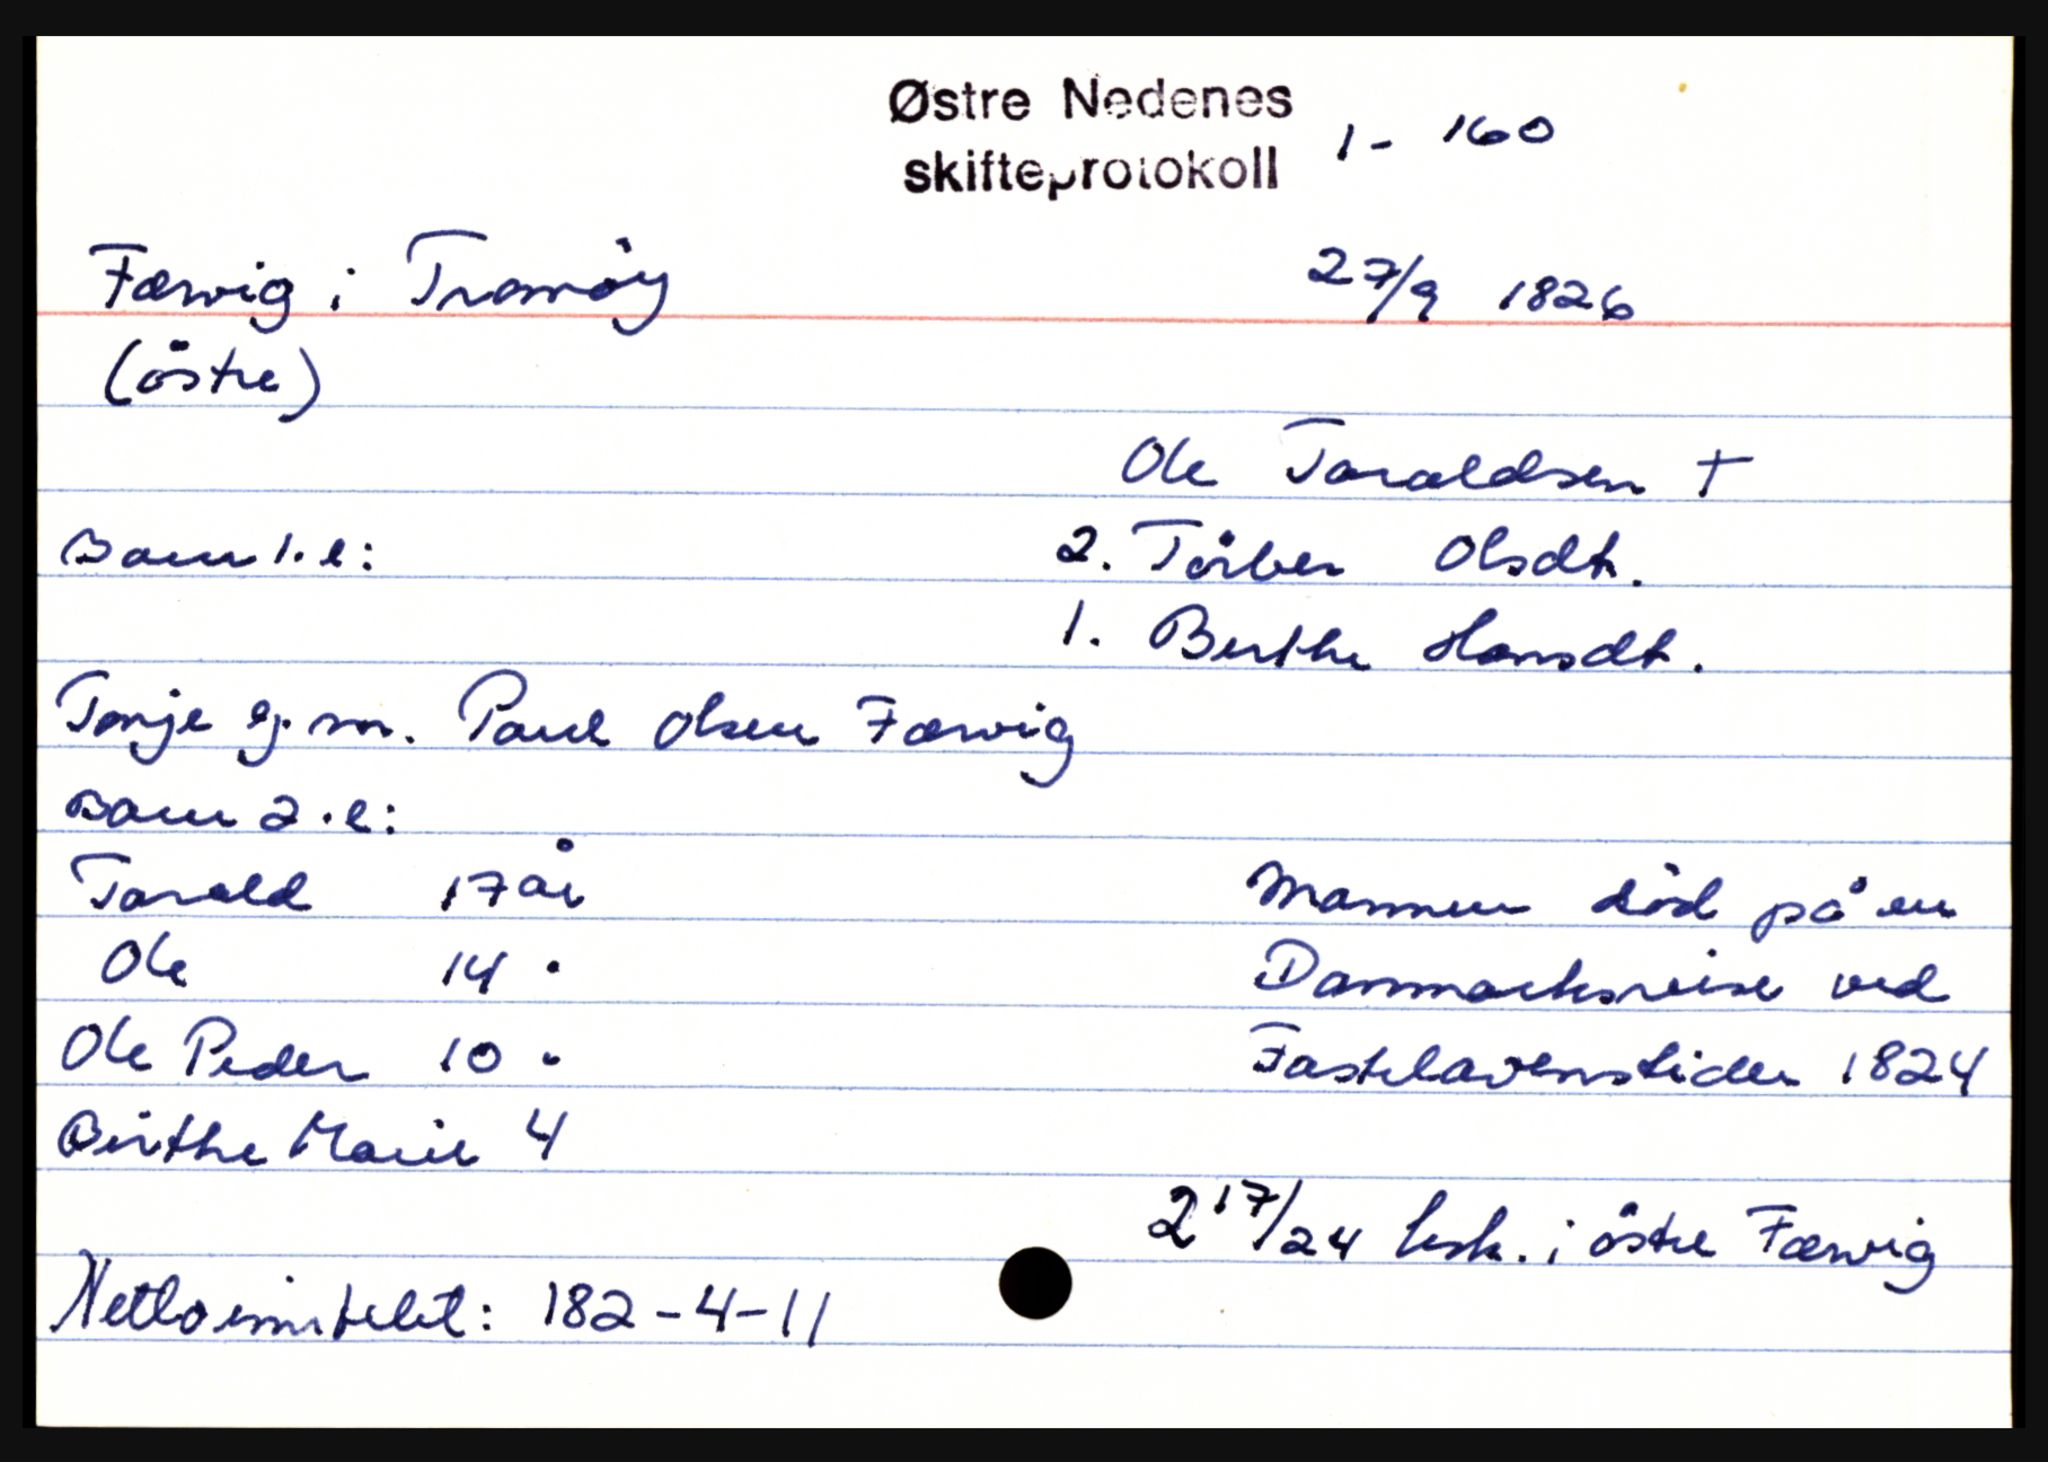 Østre Nedenes
skifteprotokoll 1 - 160
Færvig i Tromöy 27/9 1826
(östre)
Ole Taraldsen †
Barn 1. e: 2. Törber Olsdt.
1. Berthe Hansdt.
Tonje g. m. Paul Olsen Færvig
Barn 2. e:
Tarald 17 år Mannen död på en
Ole 14 " Danmarksreise ved
Ole Peder 10 " Fastelavenstider 1824
Birthe Marie 4
2 17/24 lisk. i östre Færvig
Nettoinntekt: 182-4-11